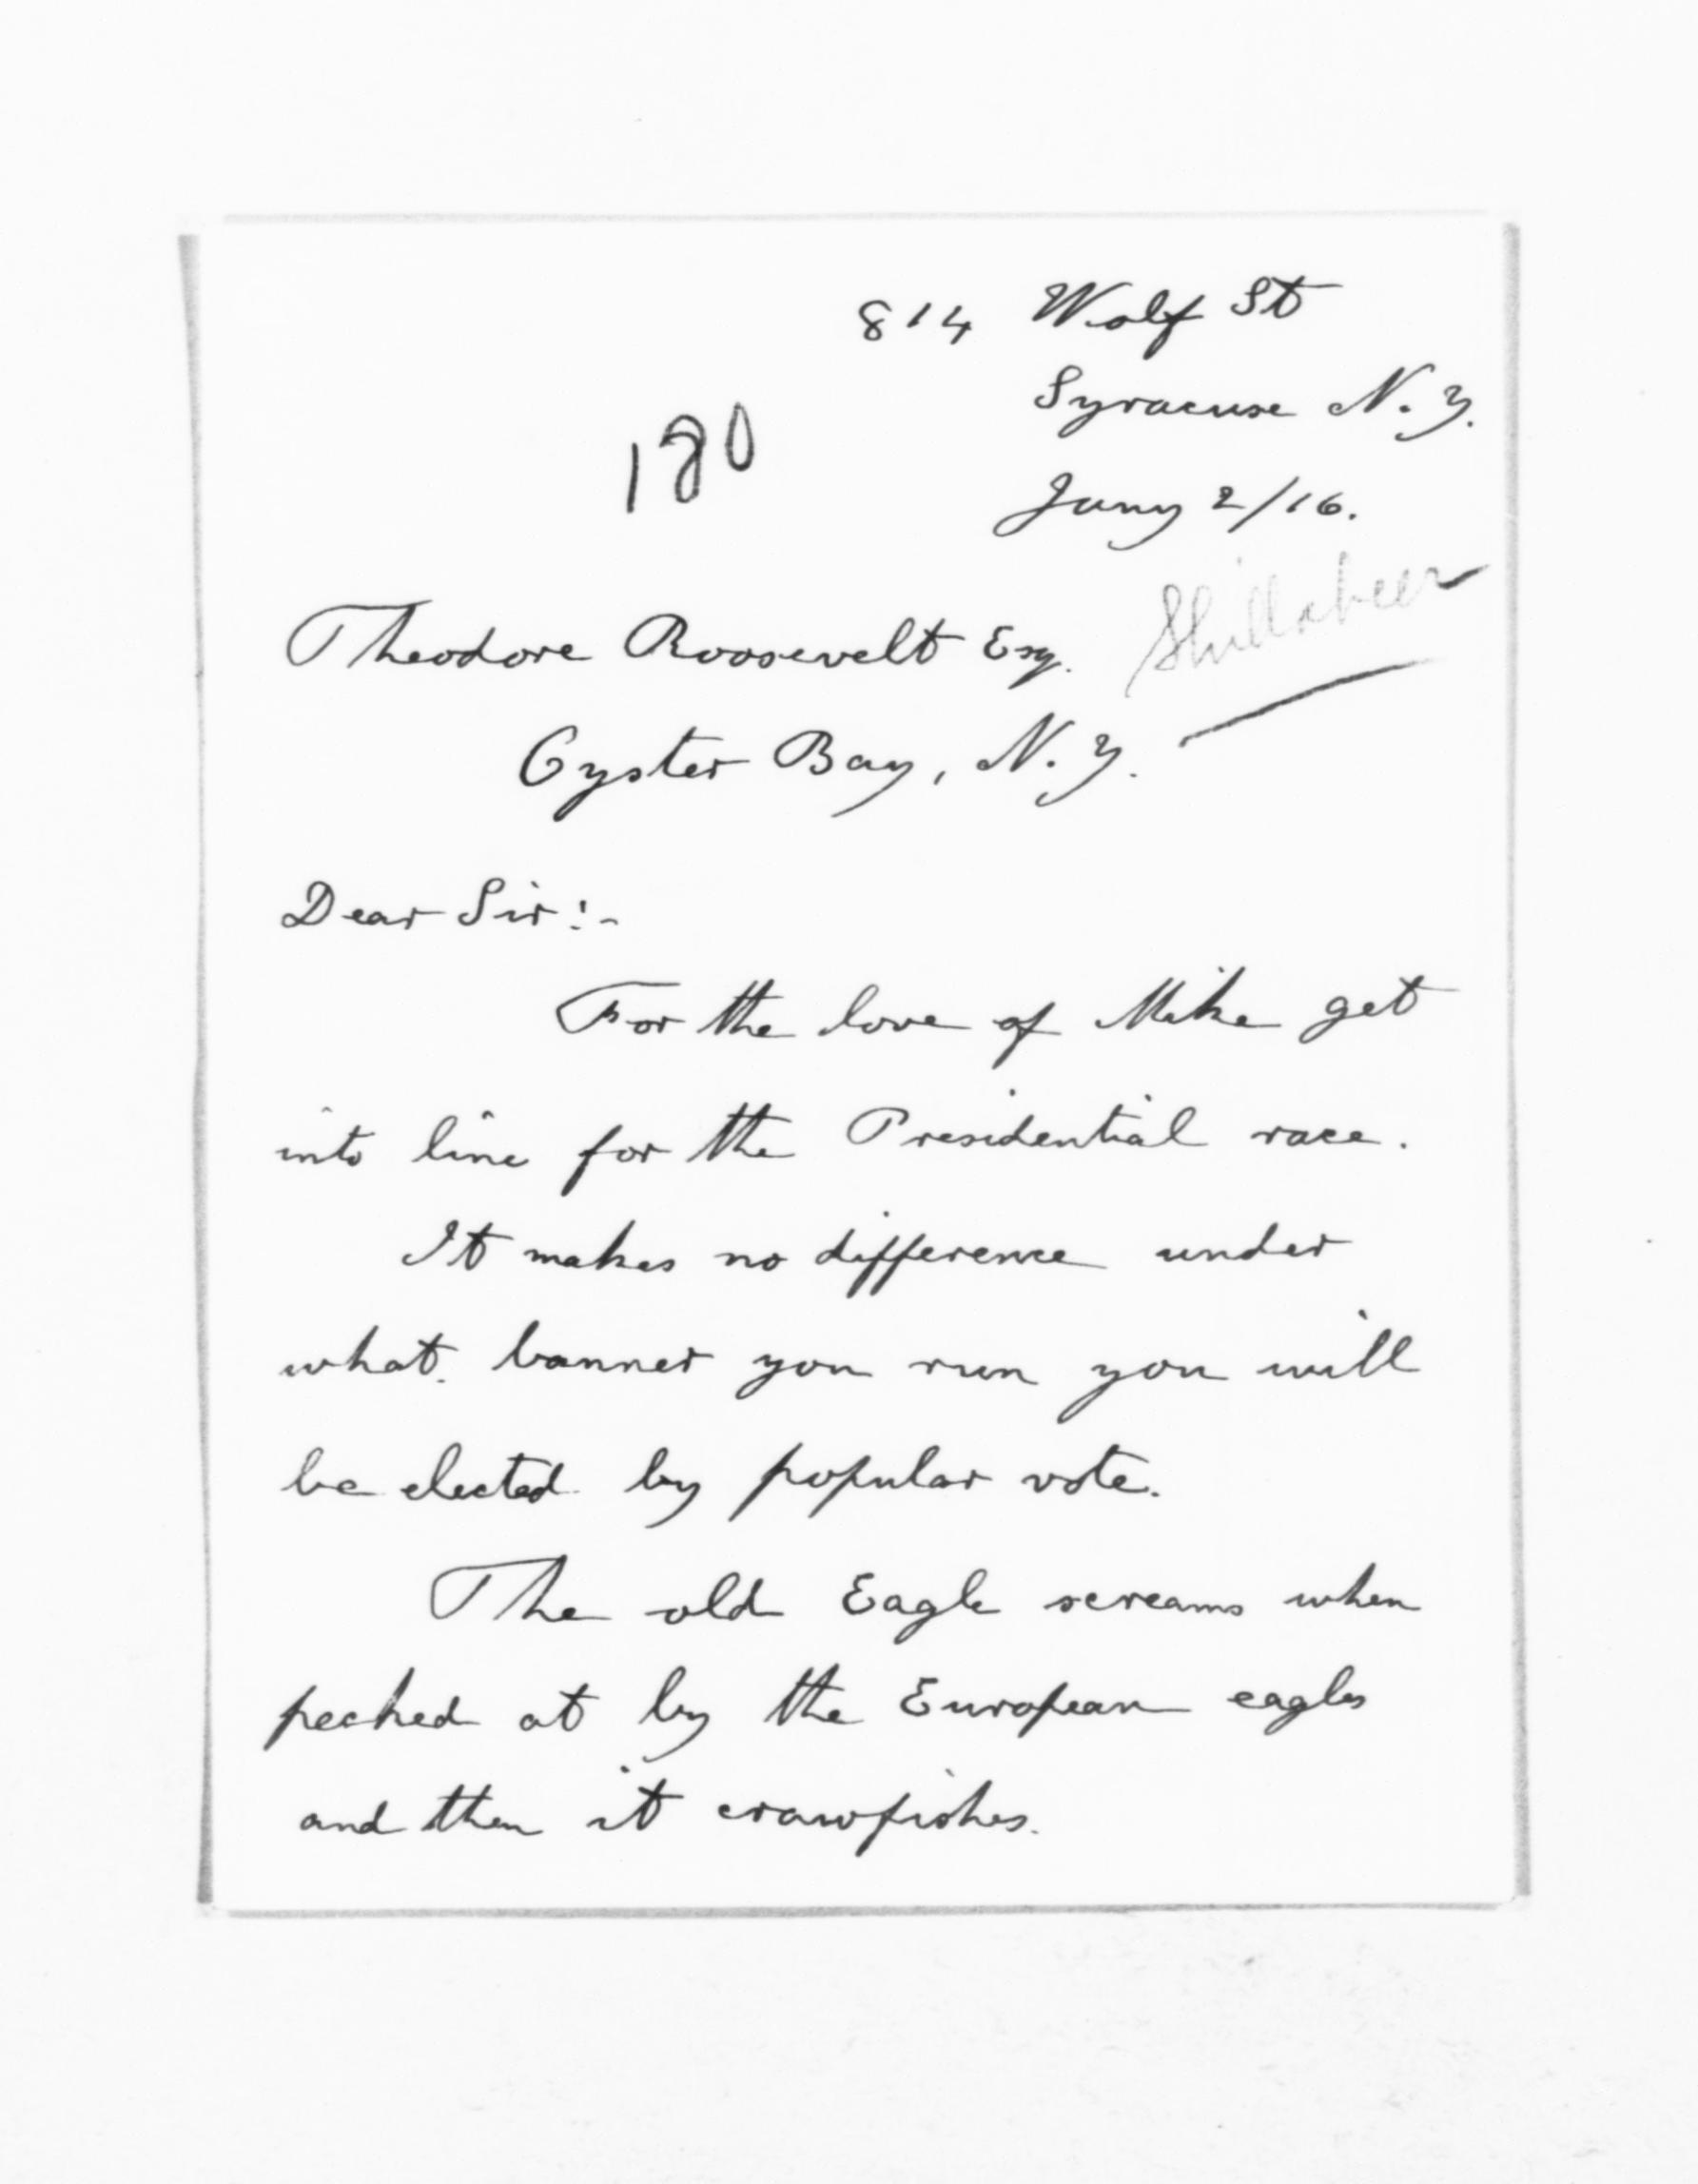 814 Wolf St
Syracuse N.Y.
180
Jany 2/16.
Shillabeer
Theodore Roosevelt Esq.
Oyster Bay, N.Y.
Dear Sir:-
For the love of Mike get
into line for the Presidential race.
It makes no difference under
what banner you run you will
be elected by popular vote.
The old Eagle screams when
pecked at by the European eagles
and then it crawfishes.